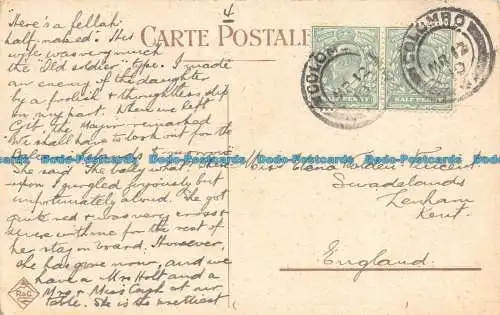 4
"Here's a fellah
half-naked". His
wife was very much
the "Old soldier" type. I made
an enemy of the daughter
by a foolish & thoughtless slip
on my part. When we left
Gib. the
We shall have to look out for the
to-morrow
She said. The bally what? Where-
upon I gurgled joyously but
unfortunately aloud. She got
quite red & was very cross &
severe with me for the rest of
her stay on board. However,
she has gone now, and we
have a Mrs Holt and a
Mrs & Miss at our
table. She is the prettiest
CARTE POSTALE
COLOMBO
MR 12
COLOMBO
MR 12
HALF PENNY
HALF PENNY
Dodo-Postcards Dodo-Postcards Dodo-Postcards Dodo-Postcards
Miss
Swadelands
Lenham
Kent.
England
R&C